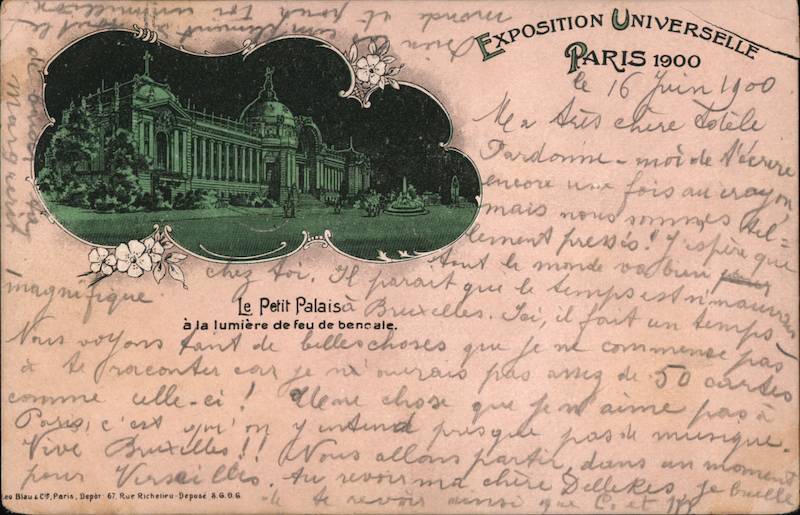 EXPOSITION UNIVERSELLE
PARIS 1900
le 16 Juin 1900
Ma très chère
Pardonne-moi de t'écrire
encore une fois au crayon
mais nous sommes tel-
lement pressés! J'espère que
tout le monde va bien
chez toi. Il parait que le temps est si mauvais
à Bruxelles. Ici, il fait un temps
magnifique
Le Petit Palais
à la lumière de feu de bengale.
Nous voyons tant de belles choses que je ne commense pas
à te raconter car je n'aurais pas assez de 50 cartes
comme celle-ci! Une chose que je n'aime pas à
Paris, c'est qu'on y entend presque pas de musique.
Vive Bruxelles!! Nous allons partir dans un moment
pour Versailles. Au revoir ma chère je
te revoir ainsi que
Leo Blau & Co, Paris, Dépôt: 67, Rue Richelieu - Déposé S.G.D.G.